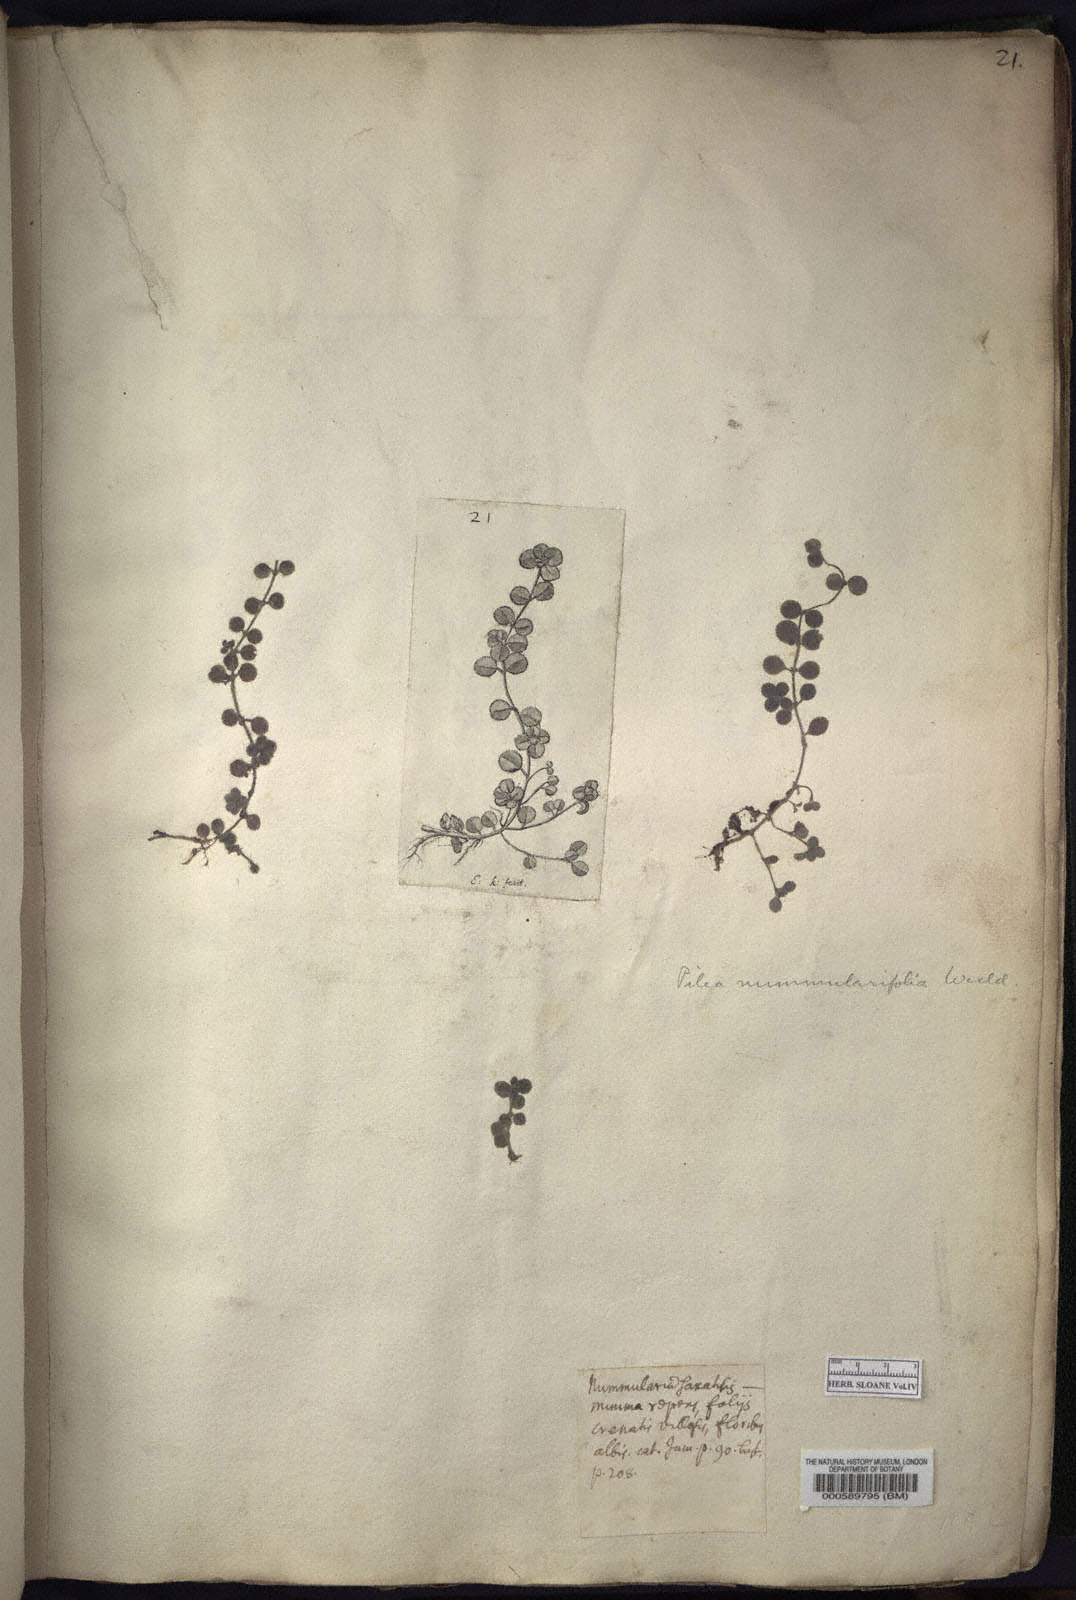 21.
21
E. k. fecit.
Pilea nummularifolia Wedd.
Nummularia Saxatilis
minima repens, folijs
crenatis villosis, floribus
albis. cat. Jam. p. 90. hist.
p. 208.
HERB. SLOANE Vol.IV
THE NATURAL HISTORY MUSEUM, LONDON
DEPARTMENT OF BOTANY
000589795 (BM)